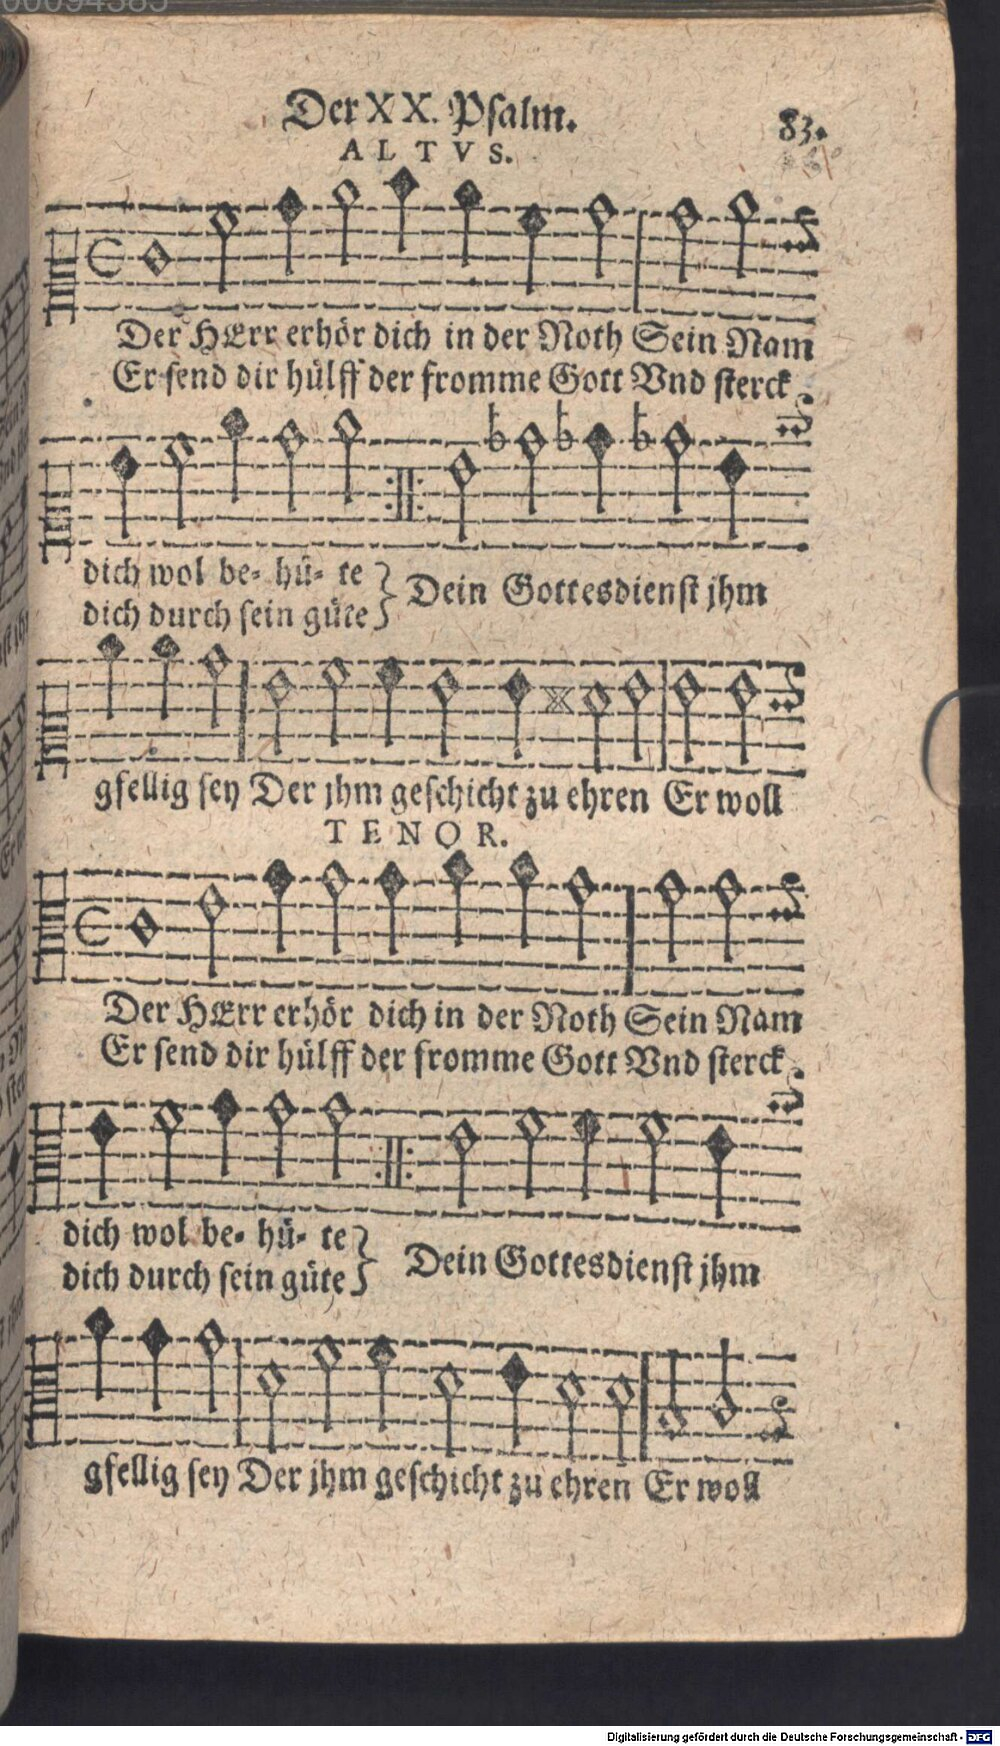 00094385
Der XX. Psalm.
83.
ALTVS.
Der HErr erhör dich in der Noth Sein Nam
Er send dir hülff der fromme Gott Vnd sterck
dich wol be- hü- te
dich durch sein güte
Dein Gottesdienst jhm
gfellig sey Der jhm geschicht zu ehren Er woll
TENOR.
Der HErr erhör dich in der Noth Sein Nam
Er send dir hülff der fromme Gott Vnd sterck
dich wol be- hü- te
dich durch sein güte
Dein Gottesdienst jhm
gfellig sey Der jhm geschicht zu ehren Er woll
Digitalisierung gefördert durch die Deutsche Forschungsgemeinschaft - DFG